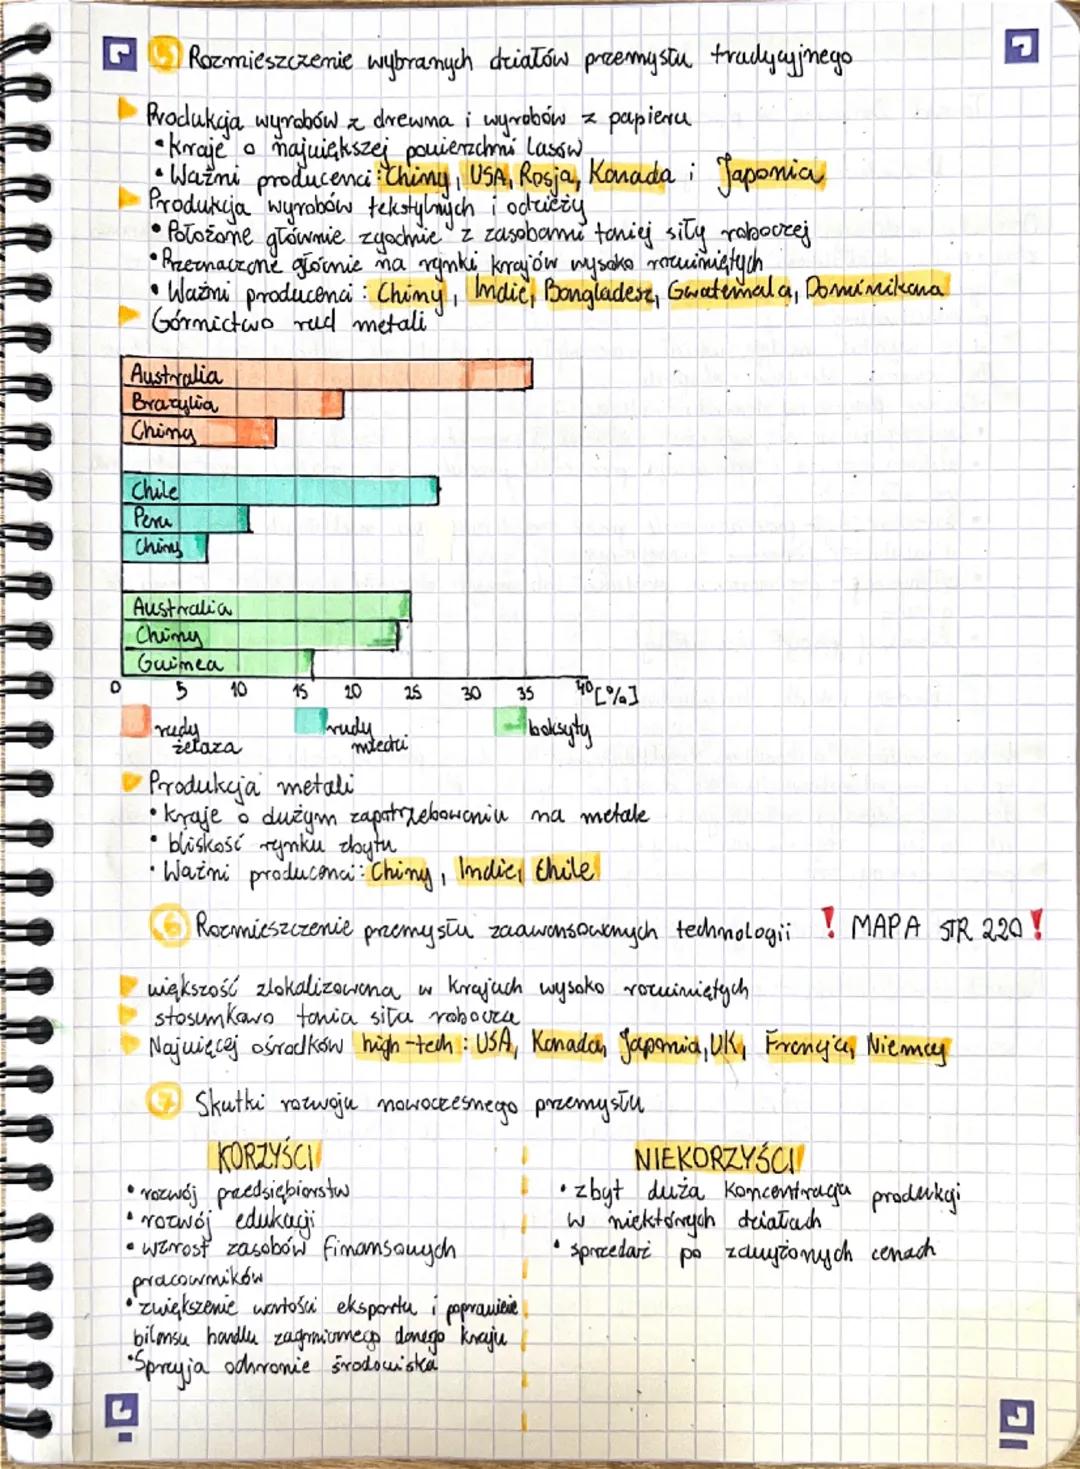 5 Rozmieszczenie wybranych działów przemysłu tradycyjnego
Produkcja wyrobów z drewna i wyrobów z papieru
• Kraje o największej powierzchni lasów
• Ważni producenci: Chiny, USA, Rosja, Kanada i Japonia
Produkcja wyrobów tekstylnych i odzieży
• Położone głównie zgodnie z zasobami taniej siły roboczej
• Przeznaczone głównie na rynki krajów wysoko rozwiniętych
• Ważni producenci: Chiny, Indie, Bangladesz, Gwatemala, Dominikana
Górnictwo rud metali
Australia
Brazylia
Chiny
Chile
Peru
Chiny
Australia
Chiny
Guinea
0 5 10 15 20 25 30 35 40 [%]
rudy żelaza
rudy miedzi
boksyty
Produkcja metali
• kraje o dużym zapotrzebowaniu na metale
• bliskość rynku zbytu
• Ważni producenci: Chiny, Indie, Chile
6 Rozmieszczenie przemysłu zaawansowanych technologii ! MAPA STR 220 !
większość zlokalizowana w krajach wysoko rozwiniętych
stosunkowo tania siła robocza
Najwięcej ośrodków high-tech: USA, Kanada, Japonia, UK, Francja, Niemcy
7 Skutki rozwoju nowoczesnego przemysłu
KORZYŚCI
• rozwój przedsiębiorstw
• rozwój edukacji
• wzrost zasobów finansowych
pracowników
• zwiększenie wartości eksportu i poprawienie
bilansu handlu zagranicznego danego kraju
• Sprzyja ochronie środowiska
NIEKORZYŚCI
• zbyt duża koncentracja produkcji
w niektórych działach
• sprzedaż po zawyżonych cenach